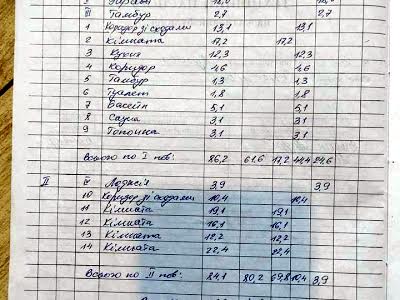 III Тамбур 2,7 2,7
1 Коридор зі сходами 13,1 13,1
2 Кімната 17,2 17,2
3 Кухня 12,3 12,3
4 Коридор 4,6 4,6
5 Тамбур 1,3 1,3
6 Туалет 1,8 1,8
7 Басейн 5,1 5,1
8 Сауна 3,1 3,1
9 Топочна 3,1 3,1
Всього по I пов: 86,2 61,6 17,2 44,4 24,6
II IV Лоджія 3,9 3,9
10 Коридор зі сходами 10,4 10,4
11 Кімната 19,1 19,1
12 Кімната 16,1 16,1
13 Кімната 12,2 12,2
14 Кімната 22,4 22,4
Всього по II пов: 84,1 80,2 69,8 10,4 3,9